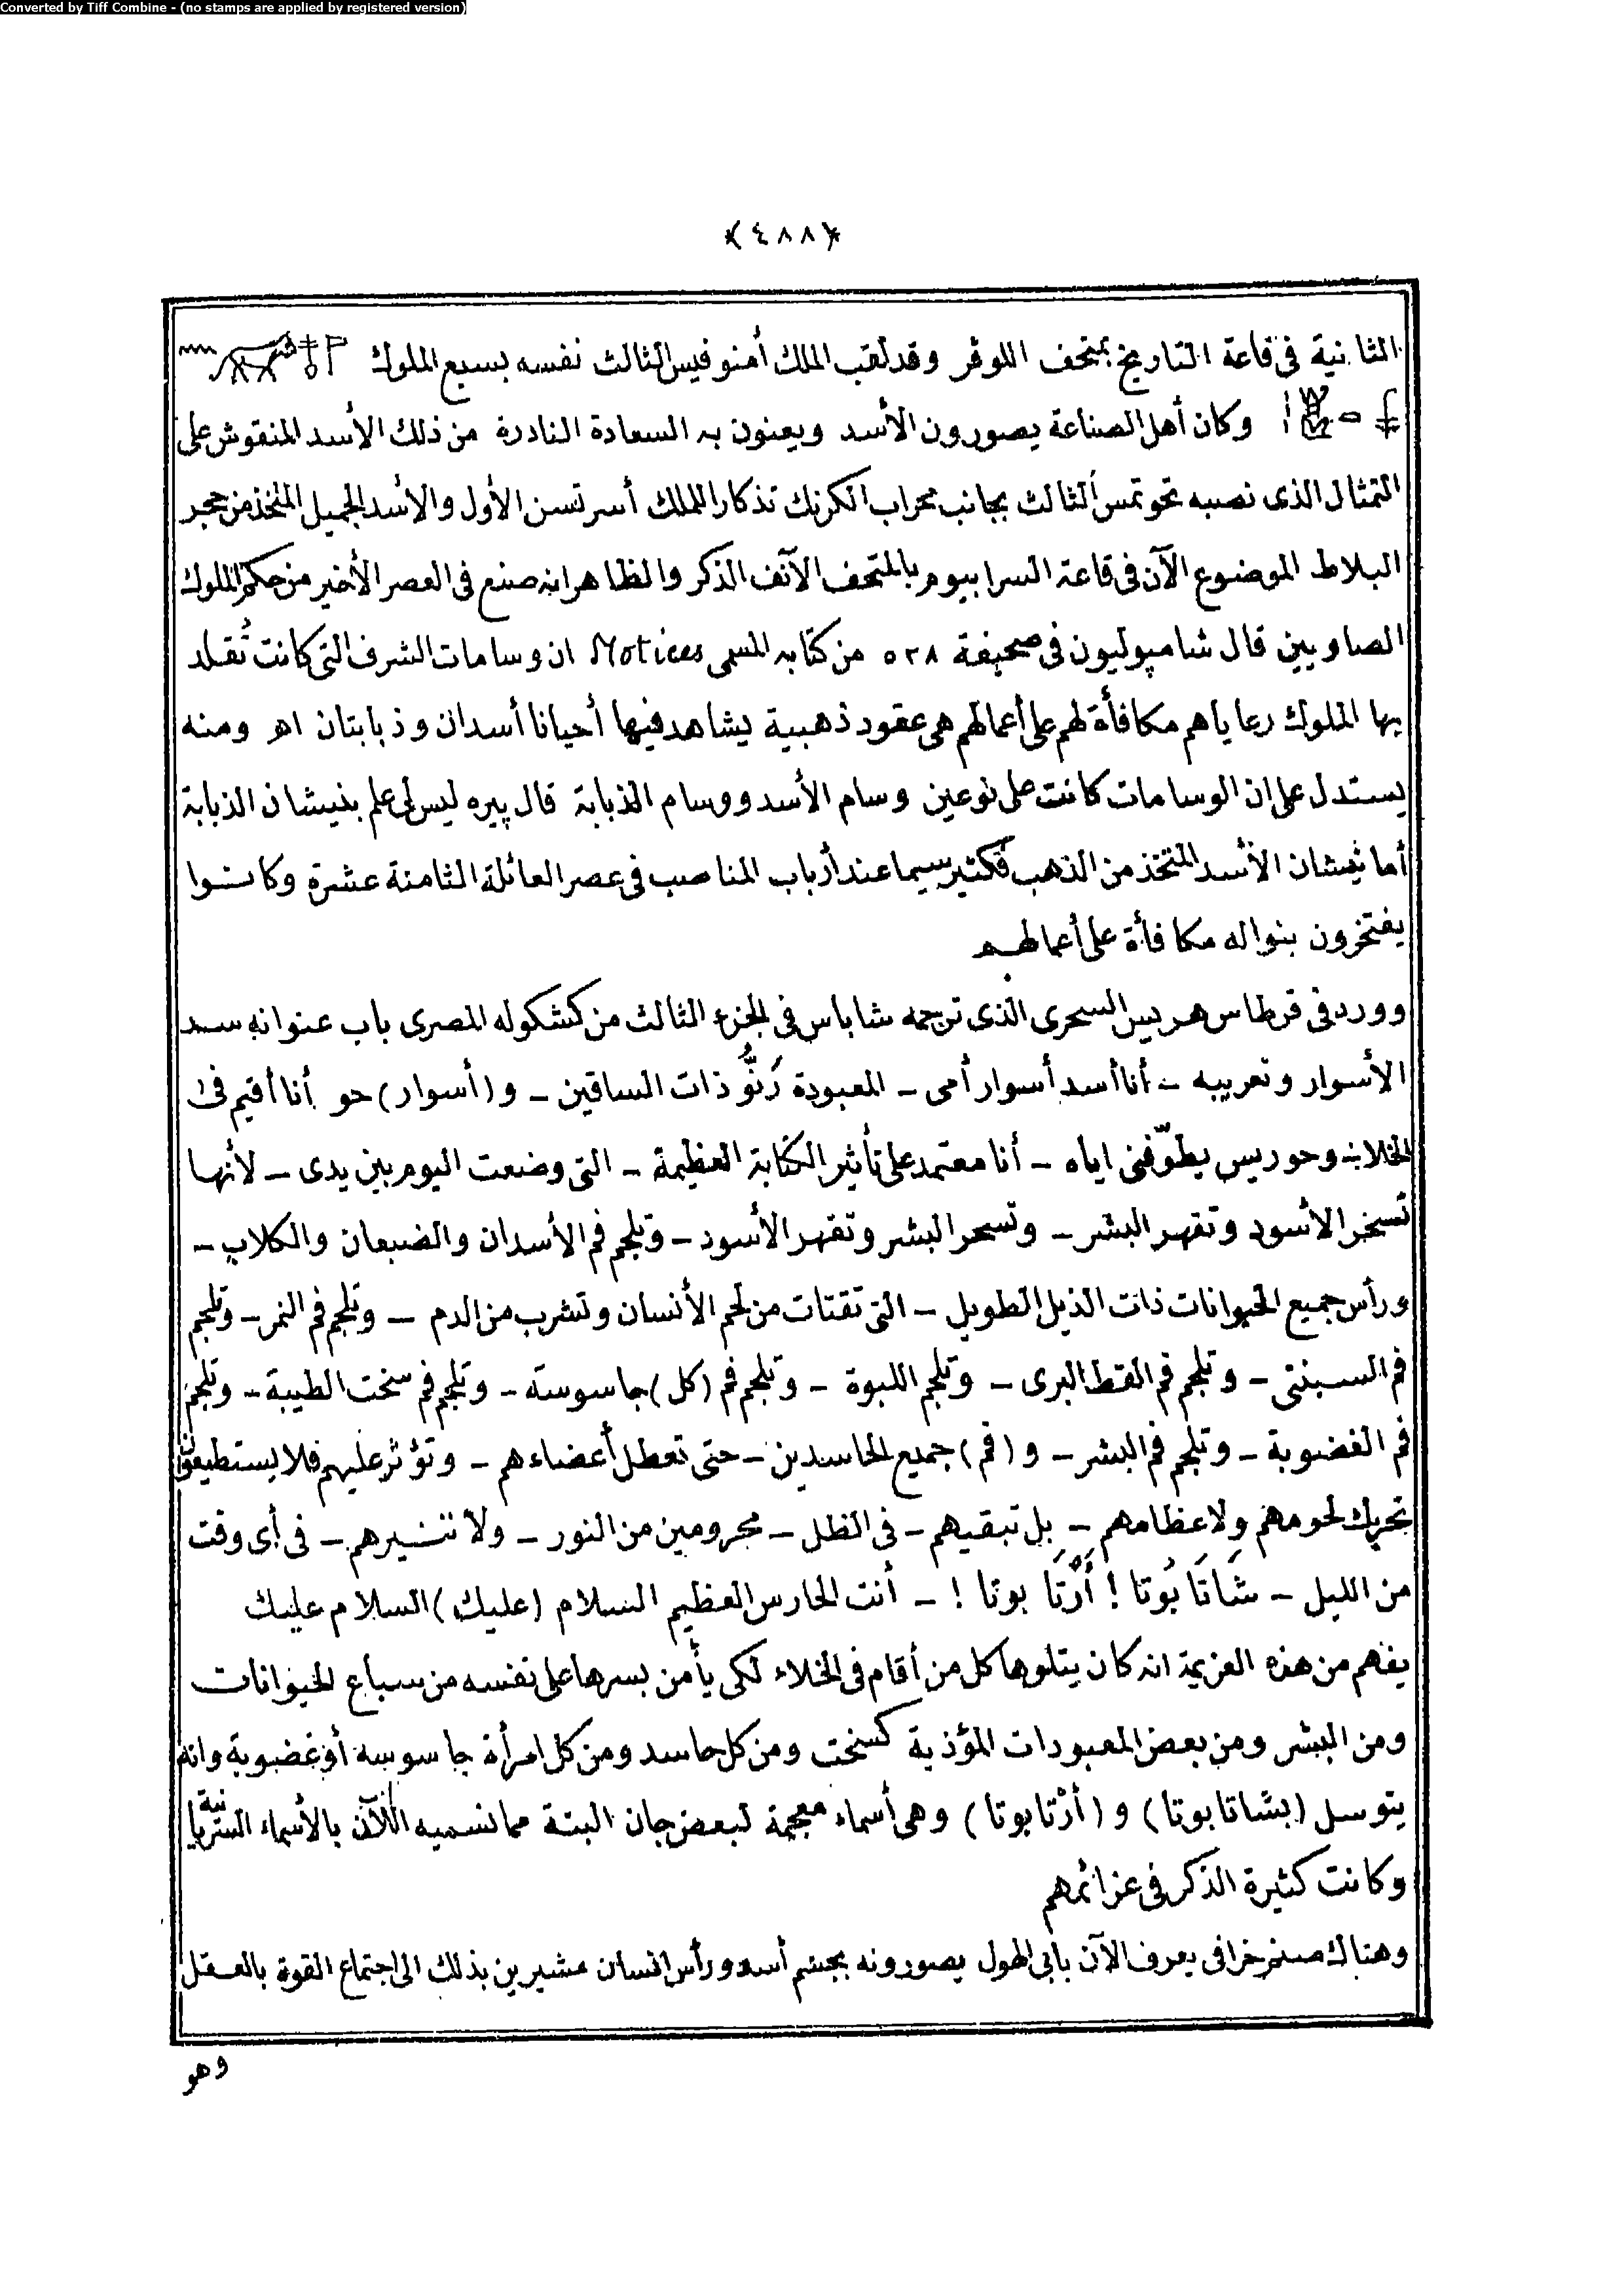 Converted by Tiff Combine - (no stamps are applied by registered version)
﴿٤٨٨﴾
الثانية فى قاعة التاريخ بمتحف اللوفر وقد لقب الملك أمنوفيس الثالث نفسه بسبع الملوك
وكان أهل الصناعة يصورون الأسد ويعنون به السعادة النادرة من ذلك الأسد المنقوش على
التمثال الذى نصبه تحوتمس الثالث بجانب محراب الكرنك تذكارا للملك أسرتسن الأول والأسد الجميل المتخذ من حجر
البلاط الموضوع الآن فى قاعة السرابيوم بالمتحف الآنف الذكر والظاهر انه صنع فى العصر الأخير من حكم الملوك
الصاويين قال شامپوليون فى صحيفة ٥٢٨ من كتابه المسمى Notices ان وسامات الشرف التى كانت تُقلد
بها الملوك رعاياهم مكافأة لهم على أعمالهم هى عقود ذهبية يشاهد فيها أحيانا أسدان وذبابتان اهـ ومنه
يستدل على ان الوسامات كانت على نوعين وسام الأسد ووسام الذبابة قال پيره ليس لى علم بنيشان الذبابة
أما نيشان الأسد المتخذ من الذهب فكثير سيما عند أرباب المناصب فى عصر العائلة الثامنة عشرة وكانوا
يفتخرون بنواله مكافأة على أعمالهم
وورد فى قرطاس هريس السحرى الذى ترجمه شاباس فى الجزء الثالث من كشكوله المصرى باب عنوانه سد
الأسوار وتعريبه - أنا أسد أسوار أمى - المعبودة رَنُّو ذات الساقين - و (أسوار) حو أنا أقيم فى
الخلاء وحوريس يطوّفنى اياه - أنا معتمد على تأثير الكتابة العظيمة - التى وضعت اليوم بين يدى - لأنها
تسخر الأسود وتقهر البشر - وتسحر البشر وتقهر الأسود - وتلجم فم الأسدان والضبعان والكلاب -
ورأس جميع الحيوانات ذات الذيل الطويل - التى تقتات من لحم الأنسان وتشرب من الدم - وتلجم فم النمر - وتلجم
فم السبنتى - وتلجم فم القط البرى - وتلجم اللبوة - وتلجم فم (كل) جاسوسة - وتلجم فم سخت الطيبة - وتلجم
فم الغضوبة - وتلجم فم البشر - و (فم) جميع الحاسدين - حتى تعطل أعضاءهم - وتؤثر عليهم فلا يستطيعون
تحريك لحومهم ولا عظامهم - بل تبقيهم - فى الظل - محرومين من النور - ولا تسيرهم - فى أى وقت
من الليل - شَاتَا بُوتا ! أَرْتَا بوتا ! - أنت الحارس العظيم السلام (عليك) السلام عليك
يفهم من هذه العزيمة انه كان يتلوها كل من أقام فى الخلاء لكى يأمن بسرها على نفسه من سباع الحيوانات
ومن البشر ومن بعض المعبودات المؤذية كسخت ومن كل حاسد ومن كل امرأة جاسوسه أو غضوبة وانه
يتوسل (بشاتا بوتا) و (أرْتا بوتا) وهى أسماء معجمة لبعض جان البتة مما نسميه الآن بالأسماء السريانية
وكانت كثيرة الذكر فى عزائمهم
وهناك صنم خرافى يعرف الآن بابى الهول يصورونه بجسم أسد ورأس انسان مشيرين بذلك الى اجتماع القوة بالعقل
وهو